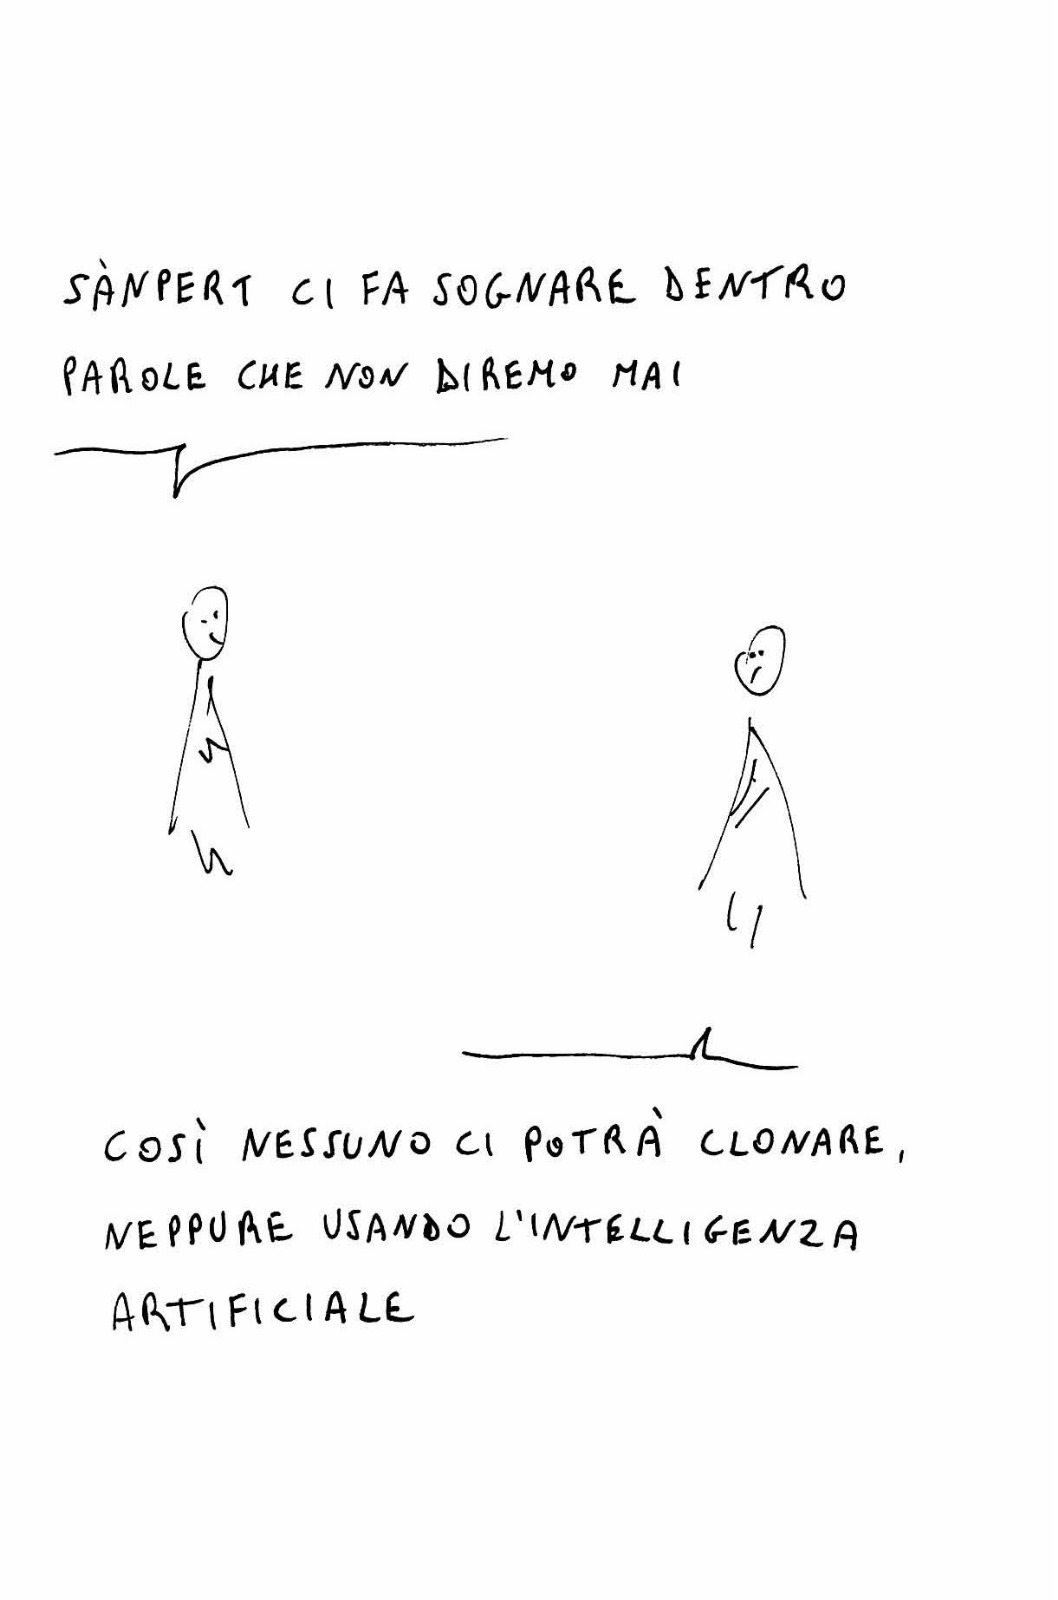 SÀNPERT CI FA SOGNARE DENTRO
PAROLE CHE NON DIREMO MAI
COSÌ NESSUNO CI POTRÀ CLONARE,
NEPPURE USANDO L'INTELLIGENZA
ARTIFICIALE